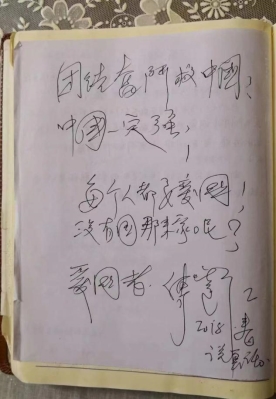 团结奋斗救中國！
中國一定强！
每个人都要爱國！
没有国那来家呢？
爱國者
2018
说